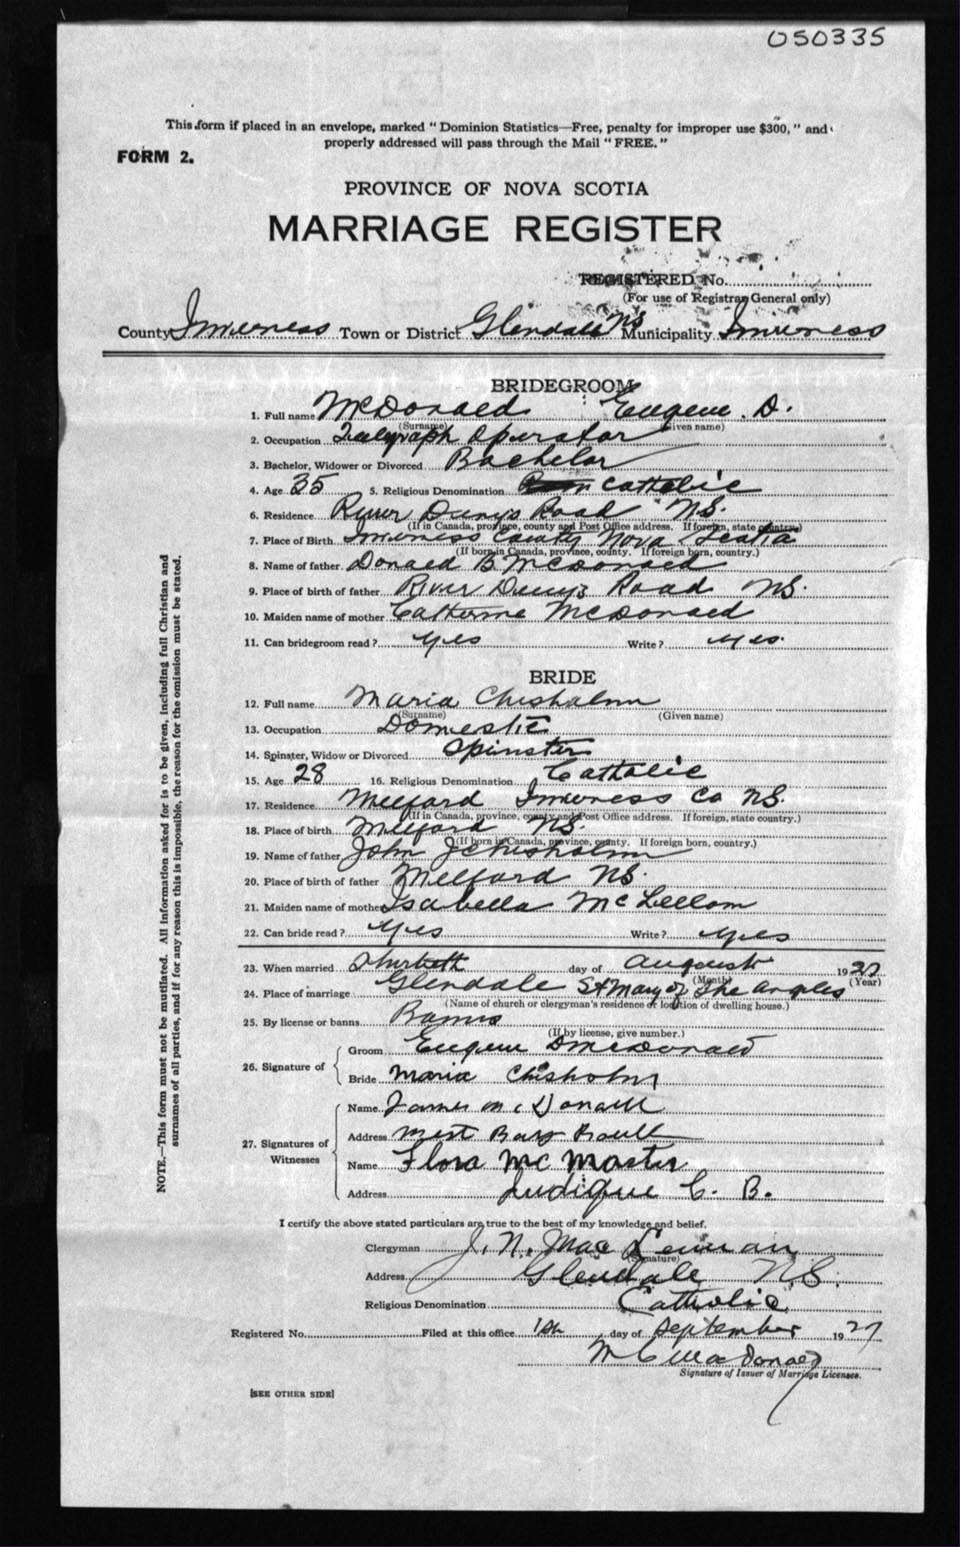 050335
This form if placed in an envelope, marked " Dominion Statistics—Free, penalty for improper use $300, " and
properly addressed will pass through the Mail " FREE. "
FORM 2.
PROVINCE OF NOVA SCOTIA
MARRIAGE REGISTER
REGISTERED No.
(For use of Registrar General only)
County Inverness Town or District Glendale NS Municipality Inverness
BRIDEGROOM
1. Full name McDonald Eugene D.
(Surname) (Given name)
2. Occupation Telegraph Operator
3. Bachelor, Widower or Divorced Bachelor
4. Age 35 5. Religious Denomination Catholic
6. Residence River Denys Road N.S.
(If in Canada, province, county and Post Office address. If foreign, state country.)
7. Place of Birth Inverness County Nova Scotia
(If born in Canada, province, county. If foreign born, country.)
8. Name of father Donald B. McDonald
9. Place of birth of father River Denys Road NS.
10. Maiden name of mother Catherine McDonald
11. Can bridegroom read? yes Write? yes.
BRIDE
12. Full name Maria Chisholm
(Surname) (Given name)
13. Occupation Domestic
14. Spinster, Widow or Divorced Spinster
15. Age 28 16. Religious Denomination Catholic
17. Residence Melford Inverness Co NS.
(If in Canada, province, county and Post Office address. If foreign, state country.)
18. Place of birth Melford NS.
(If born in Canada, province, county. If foreign born, country.)
19. Name of father John J Chisholm
20. Place of birth of father Melford NS.
21. Maiden name of mother Isabella McLellan
22. Can bride read? yes Write? yes
23. When married day of August 1927
(Month) (Year)
24. Place of marriage Glendale St Mary of The Angles
(Name of church or clergyman's residence or location of dwelling house.)
25. By license or banns Banns
(If by license, give number.)
26. Signature of
Groom Eugene D McDonald
Bride Maria Chisholm
27. Signatures of Witnesses
Name James McDonald
Address West Bay Road
Name Flora McMaster
Address Judique C. B.
I certify the above stated particulars are true to the best of my knowledge and belief.
Clergyman J. N. Mac Lennan
(Signature)
Address Glendale N.S.
Religious Denomination Catholic
Registered No. Filed at this office 1st day of September 1927
M C MacDonald
Signature of Issuer of Marriage Licenses.
[SEE OTHER SIDE]
NOTE.—This form must not be mutilated. All information asked for is to be given, including full Christian and
surnames of all parties, and if for any reason this is impossible, the reason for the omission must be stated.